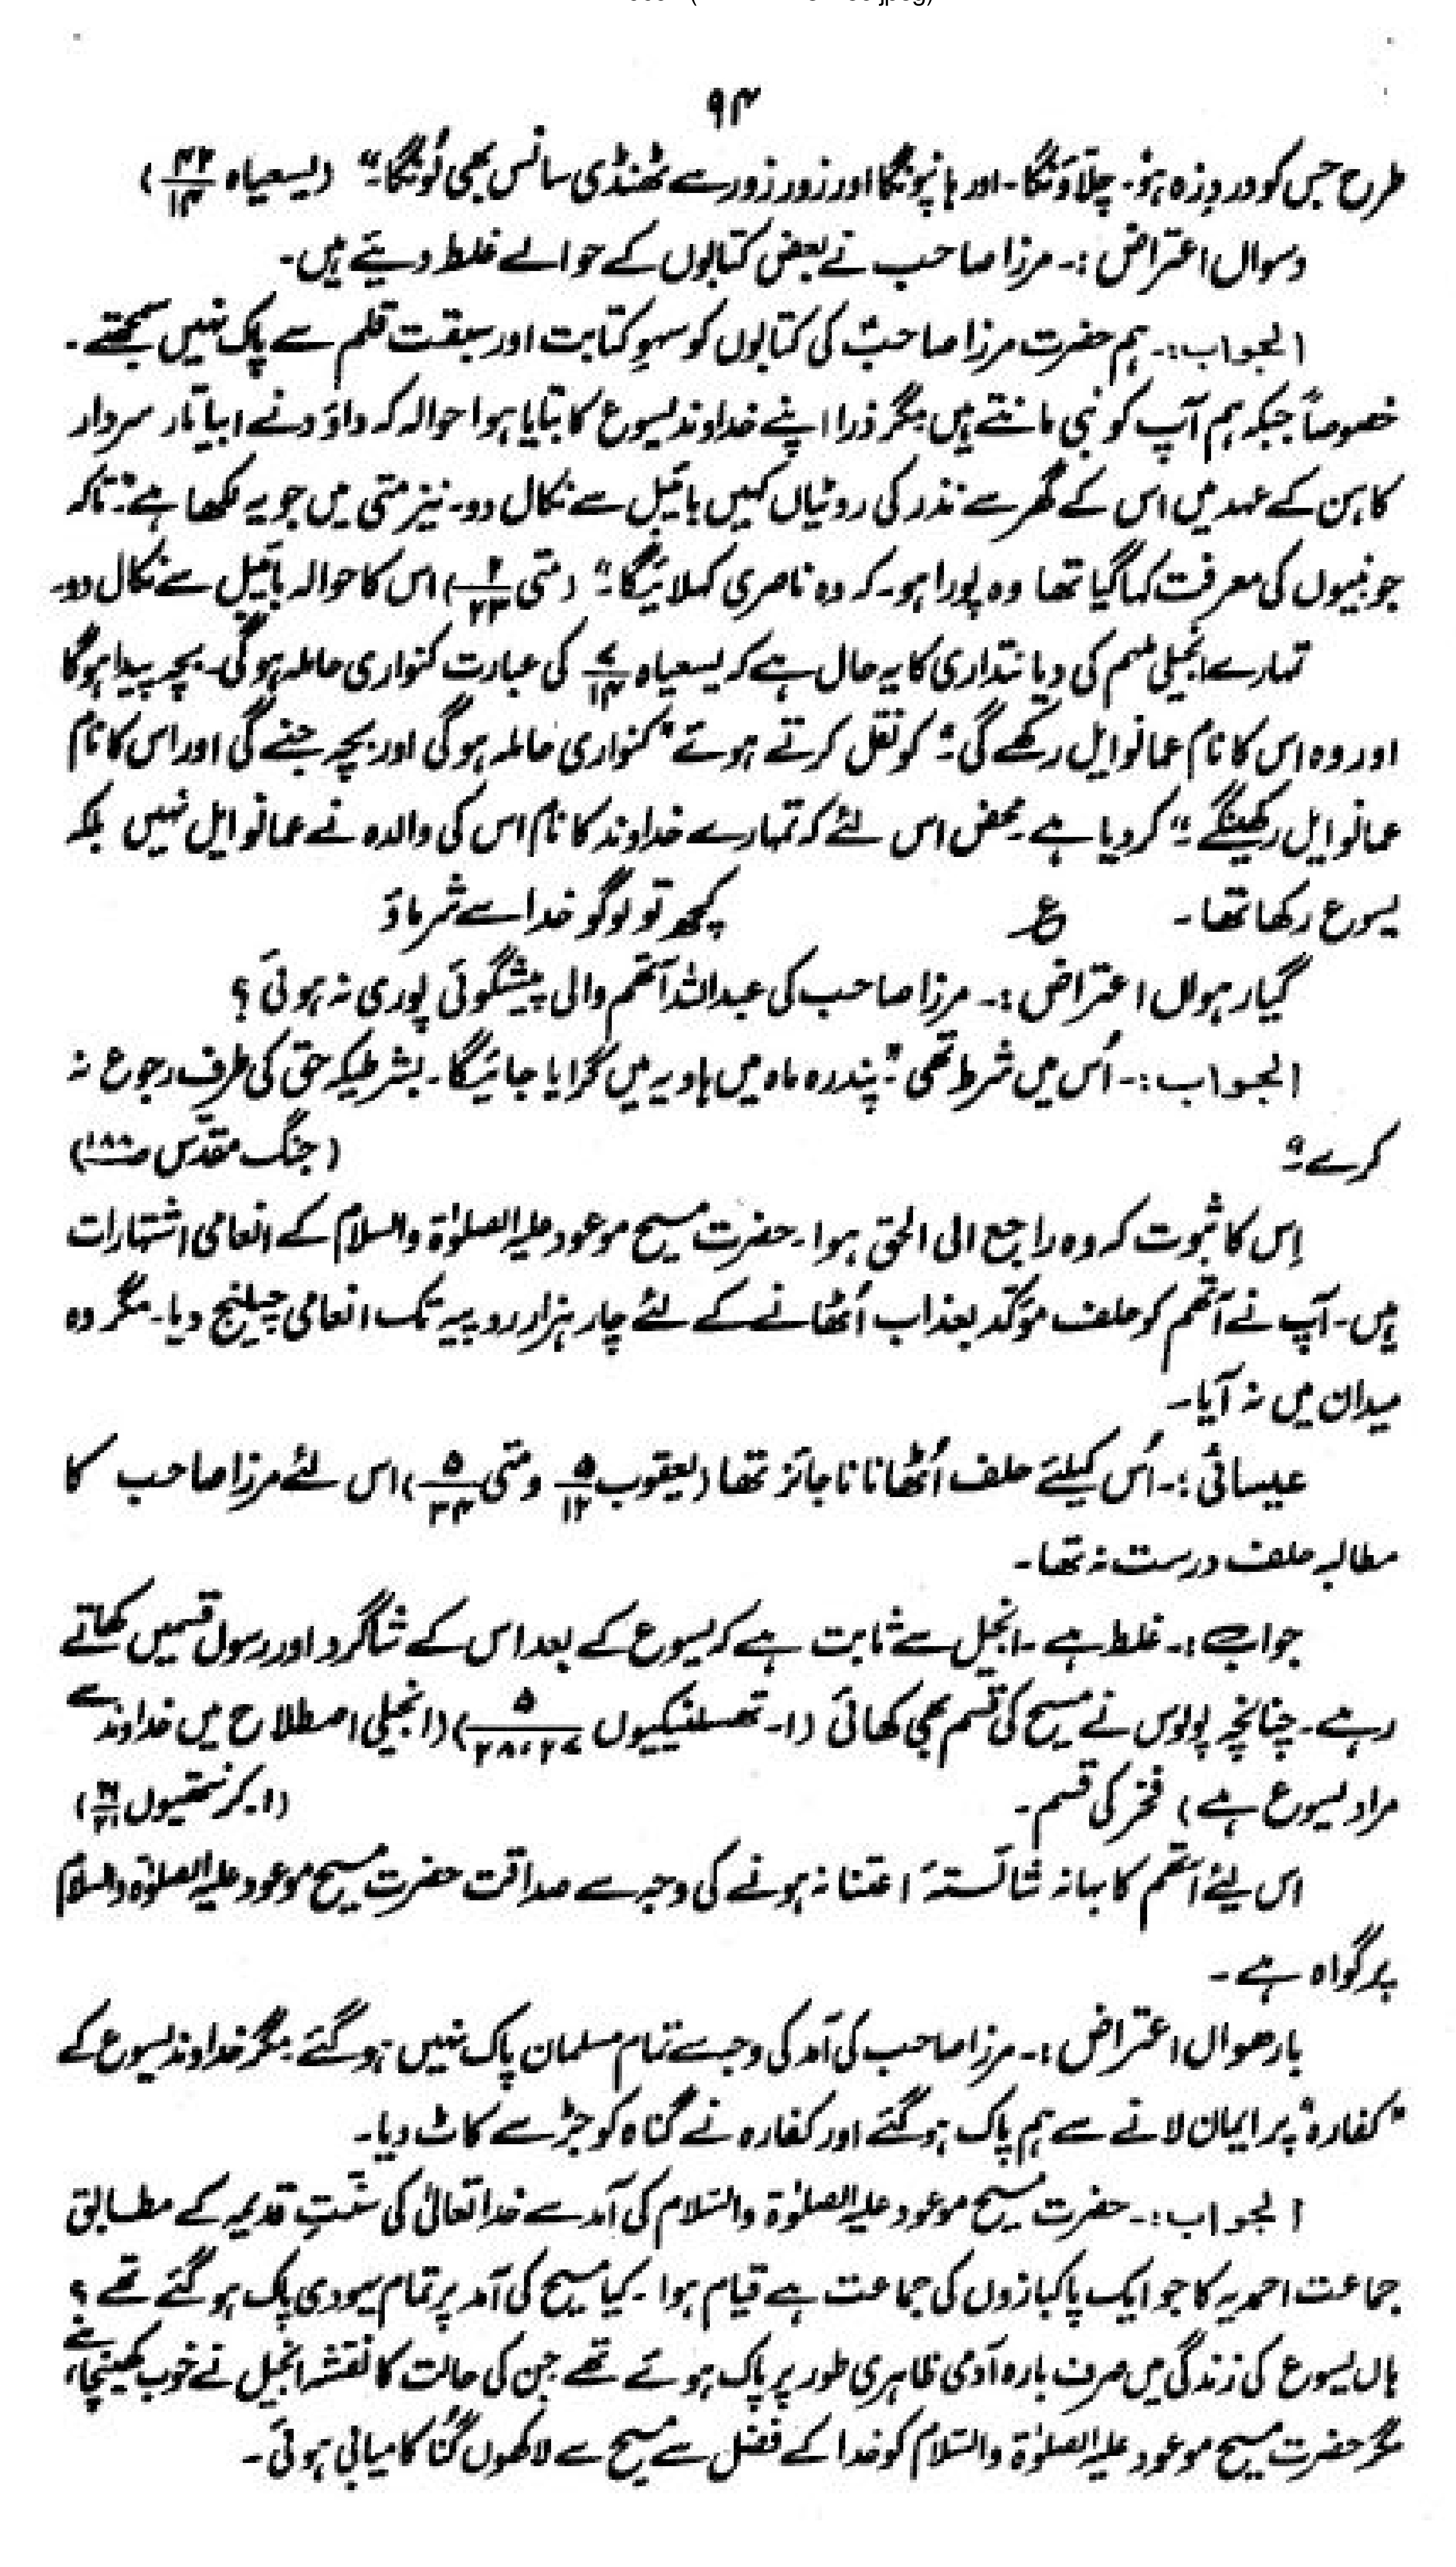 ۹۴
طرح جس کو دردِ زہ ہو۔ چلّاؤنگا۔ اور ہانپونگا اور زور زور سے ٹھنڈی سانس بھی لُونگا۔" (یسعیاہ ۴۲/۱۴)
دسواں اعتراض:۔ مرزا صاحب نے بعض کتابوں کے حوالے غلط دیئے ہیں۔
الجواب:۔ ہم حضرت مرزا صاحبؑ کی کتابوں کو سہوِ کتابت اور سبقت قلم سے پاک نہیں سمجھتے۔
خصوصاً جبکہ ہم آپ کو نبی مانتے ہیں مگر ذرا اپنے خداوند یسوع کا بتایا ہوا حوالہ کہ داؤد نے ابیاتار سردار
کاہن کے عہد میں اس کے گھر سے نذر کی روٹیاں کہیں بائیبل سے نکال دو۔ نیز متی میں جو یہ لکھا ہے:"تاکہ
جو نبیوں کی معرفت کہا گیا تھا وہ پورا ہو۔ کہ وہ ناصری کہلائیگا۔" (متی ۲/۲۳) اس کا حوالہ بائیبل سے نکال دو۔
تمہارے انجیلی ملہم کی دیانتداری کا یہ حال ہے کہ یسعیاہ ۷/۱۴ کی عبارت کنواری حاملہ ہوگی۔ بچہ پیدا ہوگا
اور وہ اس کا نام عمانوایل رکھے گی۔" کو نقل کرتے ہوئے "کنواری حاملہ ہوگی اور بچہ جنے گی اور اس کا نام
عمانوایل رکھینگے۔" کر دیا ہے۔ محض اس لئے کہ تمہارے خداوند کا نام اس کی والدہ نے عمانوایل نہیں بلکہ
یسوع رکھا تھا۔ ع کچھ تو لوگو خدا سے شرماؤ
گیارہواں اعتراض:۔ مرزا صاحب کی عبداللہ آتھم والی پیشگوئی پوری نہ ہوئی؟
الجواب:۔ اُس میں شرط تھی "پندرہ ماہ میں ہاویہ میں گرایا جائیگا۔ بشرطیکہ حق کی طرف رجوع نہ
کرے۔" (جنگ مقدّس ص۱۸۸)
اِس کا ثبوت کہ وہ راجع الی الحق ہوا۔ حضرت مسیح موعود علیہ الصلوٰۃ والسلام کے انعامی اشتہارات
ہیں۔ آپ نے آتھم کو حلف مؤکّد بعذاب اُٹھانے کے لئے چار ہزار روپیہ تک انعامی چیلنج دیا۔ مگر وہ
میدان میں نہ آیا۔
عیسائی:۔ اُس کیلئے حلف اُٹھانا ناجائز تھا (یعقوب ۵/۱۲ و متی ۵/۳۴) اس لئے مرزا صاحب کا
مطالبہ حلف درست نہ تھا۔
جواب:۔ غلط ہے۔ انجیل سے ثابت ہے کہ یسوع کے بعد اس کے شاگرد اور رسول قسمیں کھاتے
رہے۔ چنانچہ پولوس نے مسیح کی قسم بھی کھائی (۱۔ تھسلنیکیوں ۵/۲۸،۲۷) (انجیلی اصطلاح میں خداوند سے
مراد یسوع ہے) فخر کی قسم۔ (۱۔ کرنتھیوں ۳۱)
اس لیئے آتھم کا بہانہ شائستۂ اعتنا نہ ہونے کی وجہ سے صداقت حضرت مسیح موعود علیہ الصلوٰۃ والسلام
پر گواہ ہے۔
بارھواں اعتراض:۔ مرزا صاحب کی آمد کی وجہ سے تمام مسلمان پاک نہیں ہوگئے۔ مگر خداوند یسوع کے
"کفارہ" پر ایمان لانے سے ہم پاک ہوگئے اور کفارہ نے گناہ کو جڑ سے کاٹ دیا۔
الجواب:۔ حضرت مسیح موعود علیہ الصلوٰۃ والسّلام کی آمد سے خدا تعالیٰ کی سنّتِ قدیمہ کے مطابق
جماعت احمدیہ کا جو ایک پاکبازوں کی جماعت ہے قیام ہوا۔ کیا مسیح کی آمد پر تمام یہودی پاک ہوگئے تھے؟
ہاں یسوع کی زندگی میں صرف بارہ آدمی ظاہری طور پر پاک ہوئے تھے جن کی حالت کا نقشہ انجیل نے خوب کھینچا ہے،
مگر حضرت مسیح موعود علیہ الصلوٰۃ والسّلام کو خدا کے فضل سے مسیح سے لاکھوں گنُا کامیابی ہوئی۔